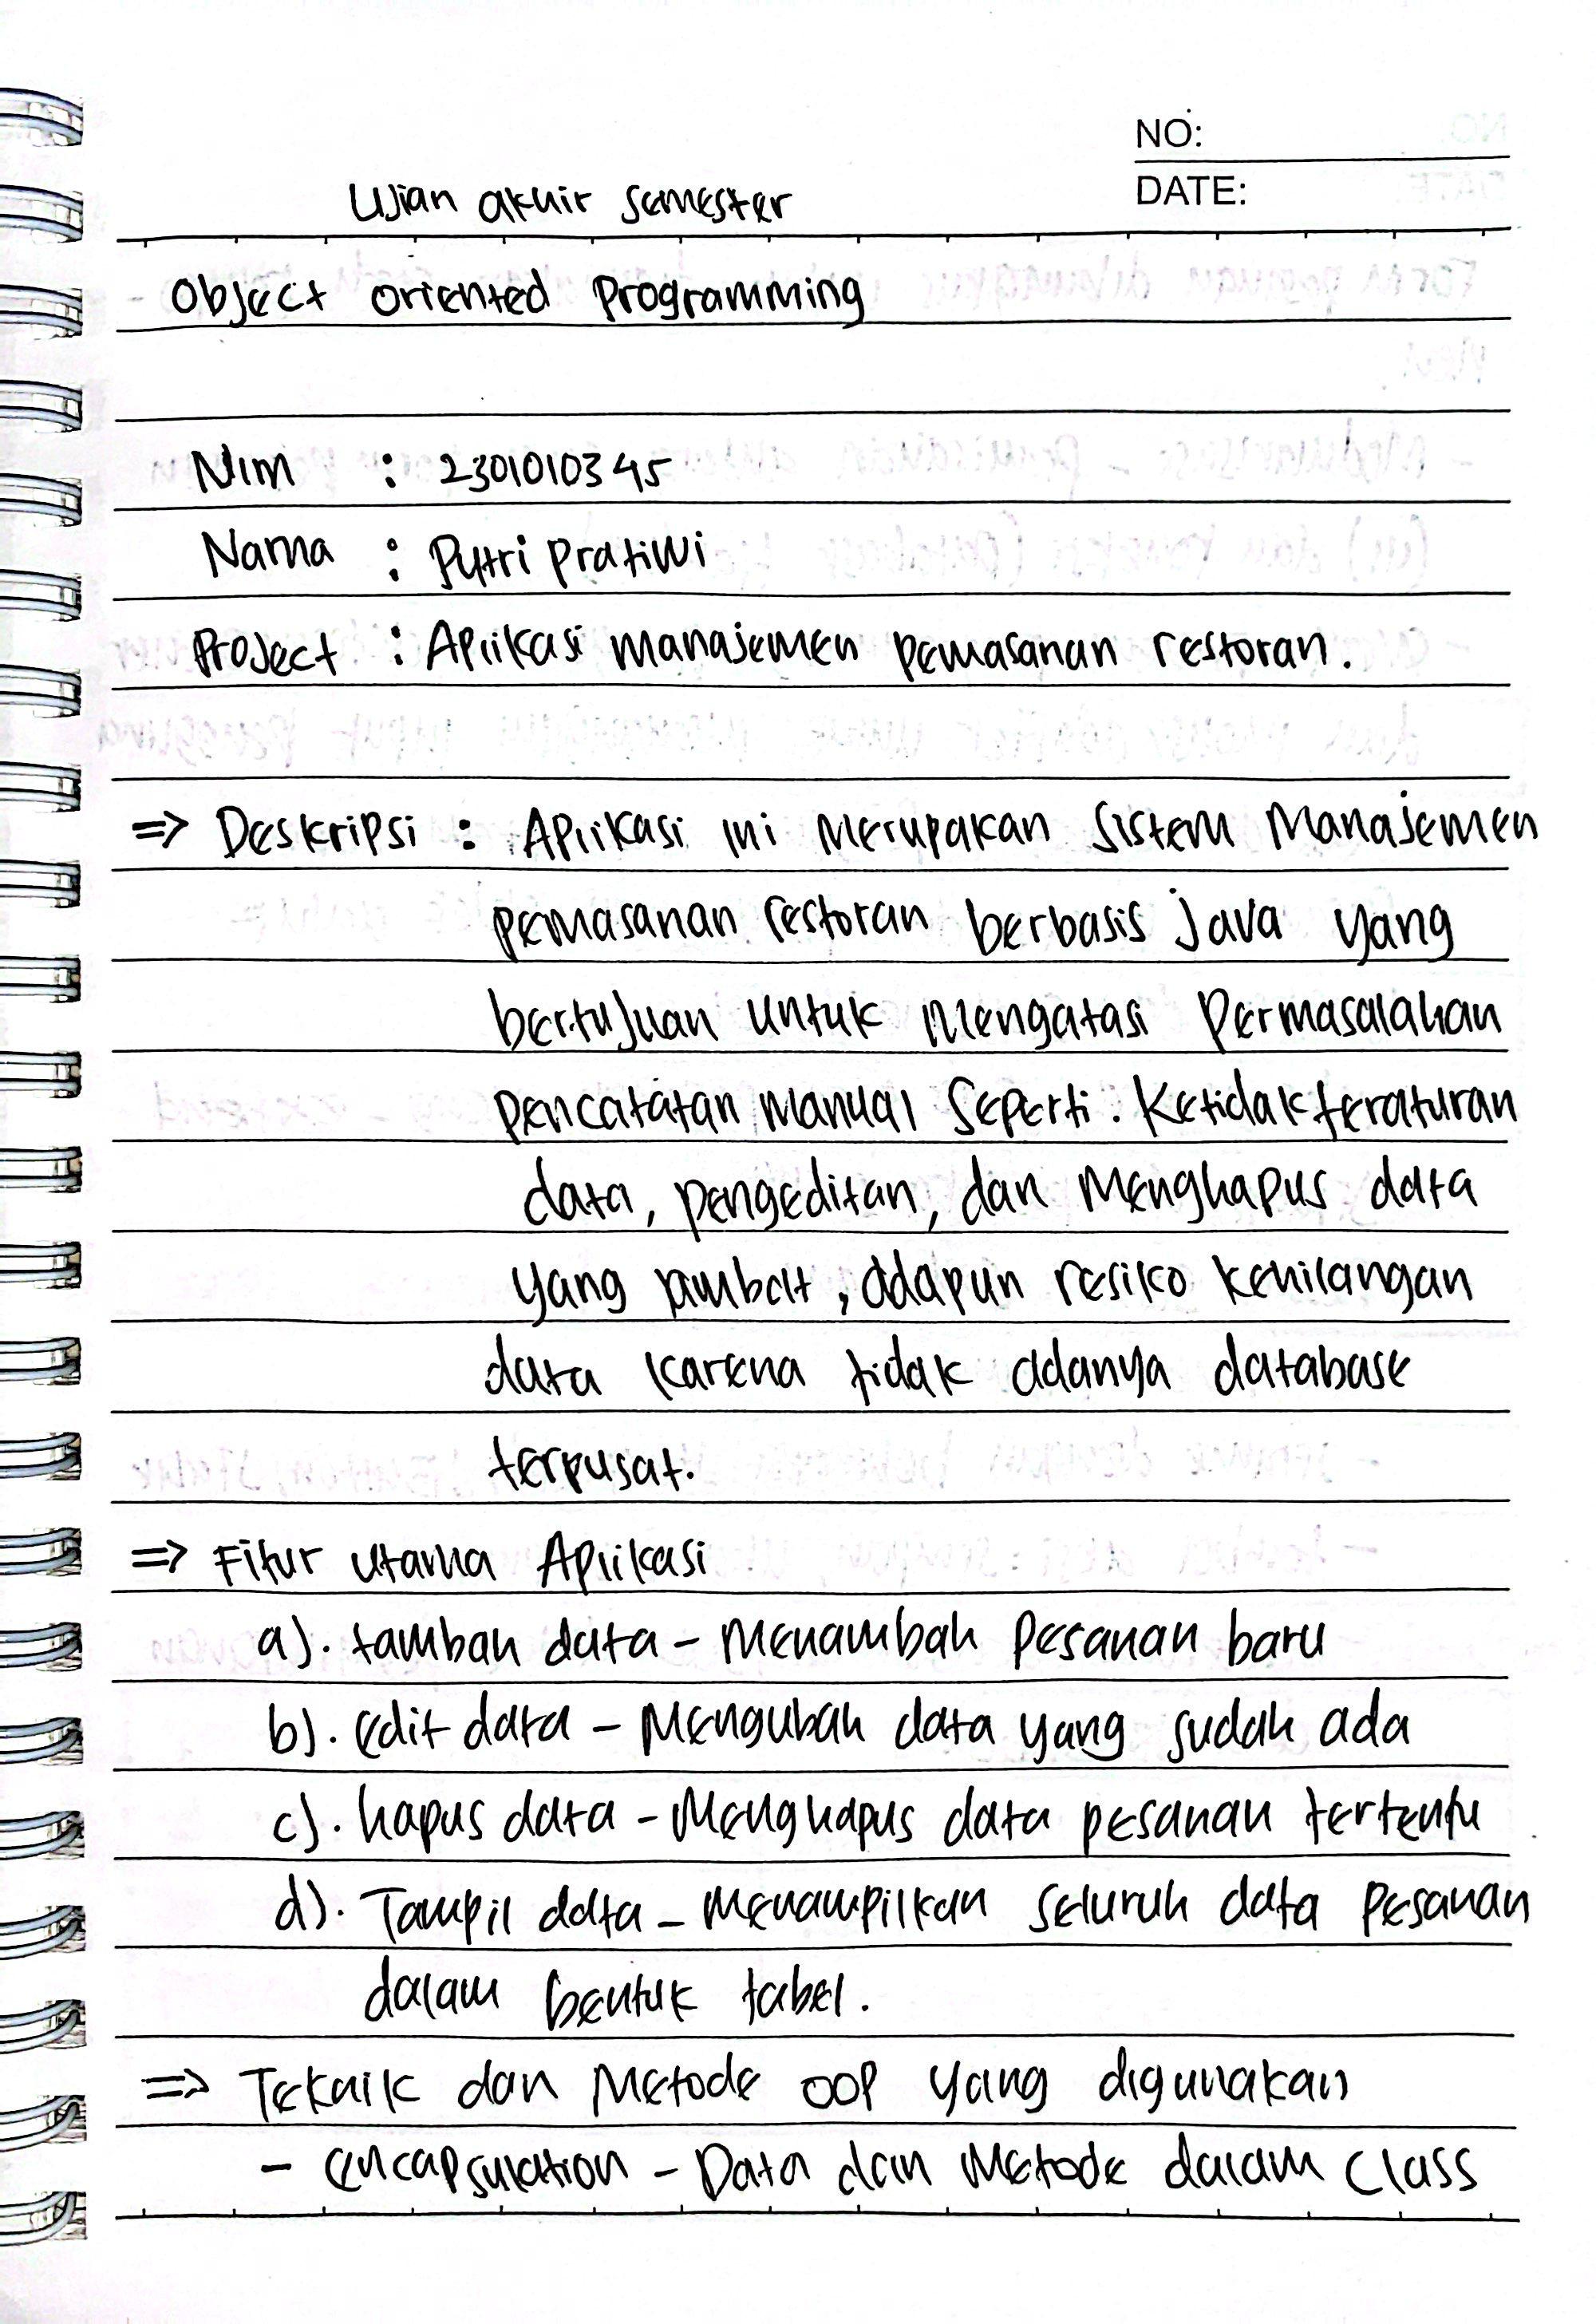 NO:
DATE:
Ujian akhir semester
Object oriented Programming
Nim : 2301010345
Nama : Putri pratiwi
Project : Aplikasi manajemen pemasanan restoran.
=> Deskripsi : Aplikasi ini merupakan sistem manajemen
pemasanan restoran berbasis java yang
bertujuan untuk mengatasi permasalahan
pencatatan manual seperti : ketidakteraturan
data, pengeditan, dan menghapus data
yang lambat, adapun resiko kehilangan
data karena tidak adanya database
terpusat.
=> Fitur utama Aplikasi
a). tambah data - Menambah pesanan baru
b). edit data - Mengubah data yang sudah ada
c). hapus data - Menghapus data pesanan tertentu
d). Tampil data - menampilkan seluruh data pesanan
dalam bentuk tabel.
=> Teknik dan Metode OOP yang digunakan
- encapsulation - Data dan Metode dalam class